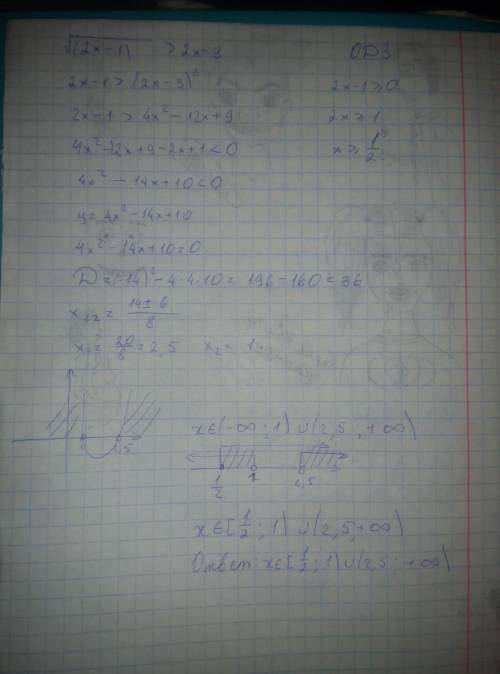 √(2x-1) > 2x-3
ОДЗ
2x-1 > (2x-3)²
2x-1 ≥ 0
2x-1 > 4x²-12x+9
2x ≥ 1
4x²-12x+9-2x+1 < 0
x ≥ 1/2
4x²-14x+10 < 0
y = 4x²-14x+10
4x²-14x+10 = 0
D = (-14)²-4·4·10 = 196-160 = 36
x₁,₂ = 14±6/8
x₁ = 20/8 = 2,5 x₂ = 1
x∈(-∞; 1)∪(2,5; +∞)
1 2,5
1/2 1 2,5
x∈[1/2; 1)∪(2,5; +∞)
Ответ: x∈[1/2; 1)∪(2,5; +∞)